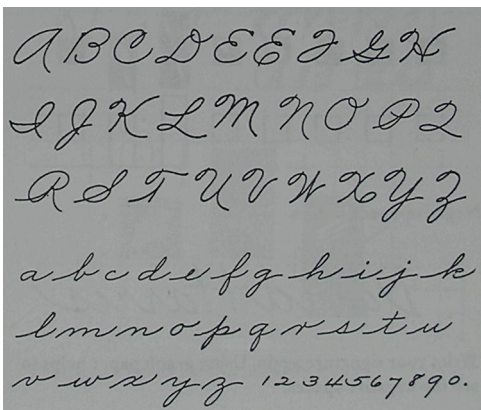 A B C D E E F G H
I J K L M N O P Q
R S T U V W X Y Z
a b c d e f g h i j k
l m n o p q r s t u
v w x y z 1 2 3 4 5 6 7 8 9 0.